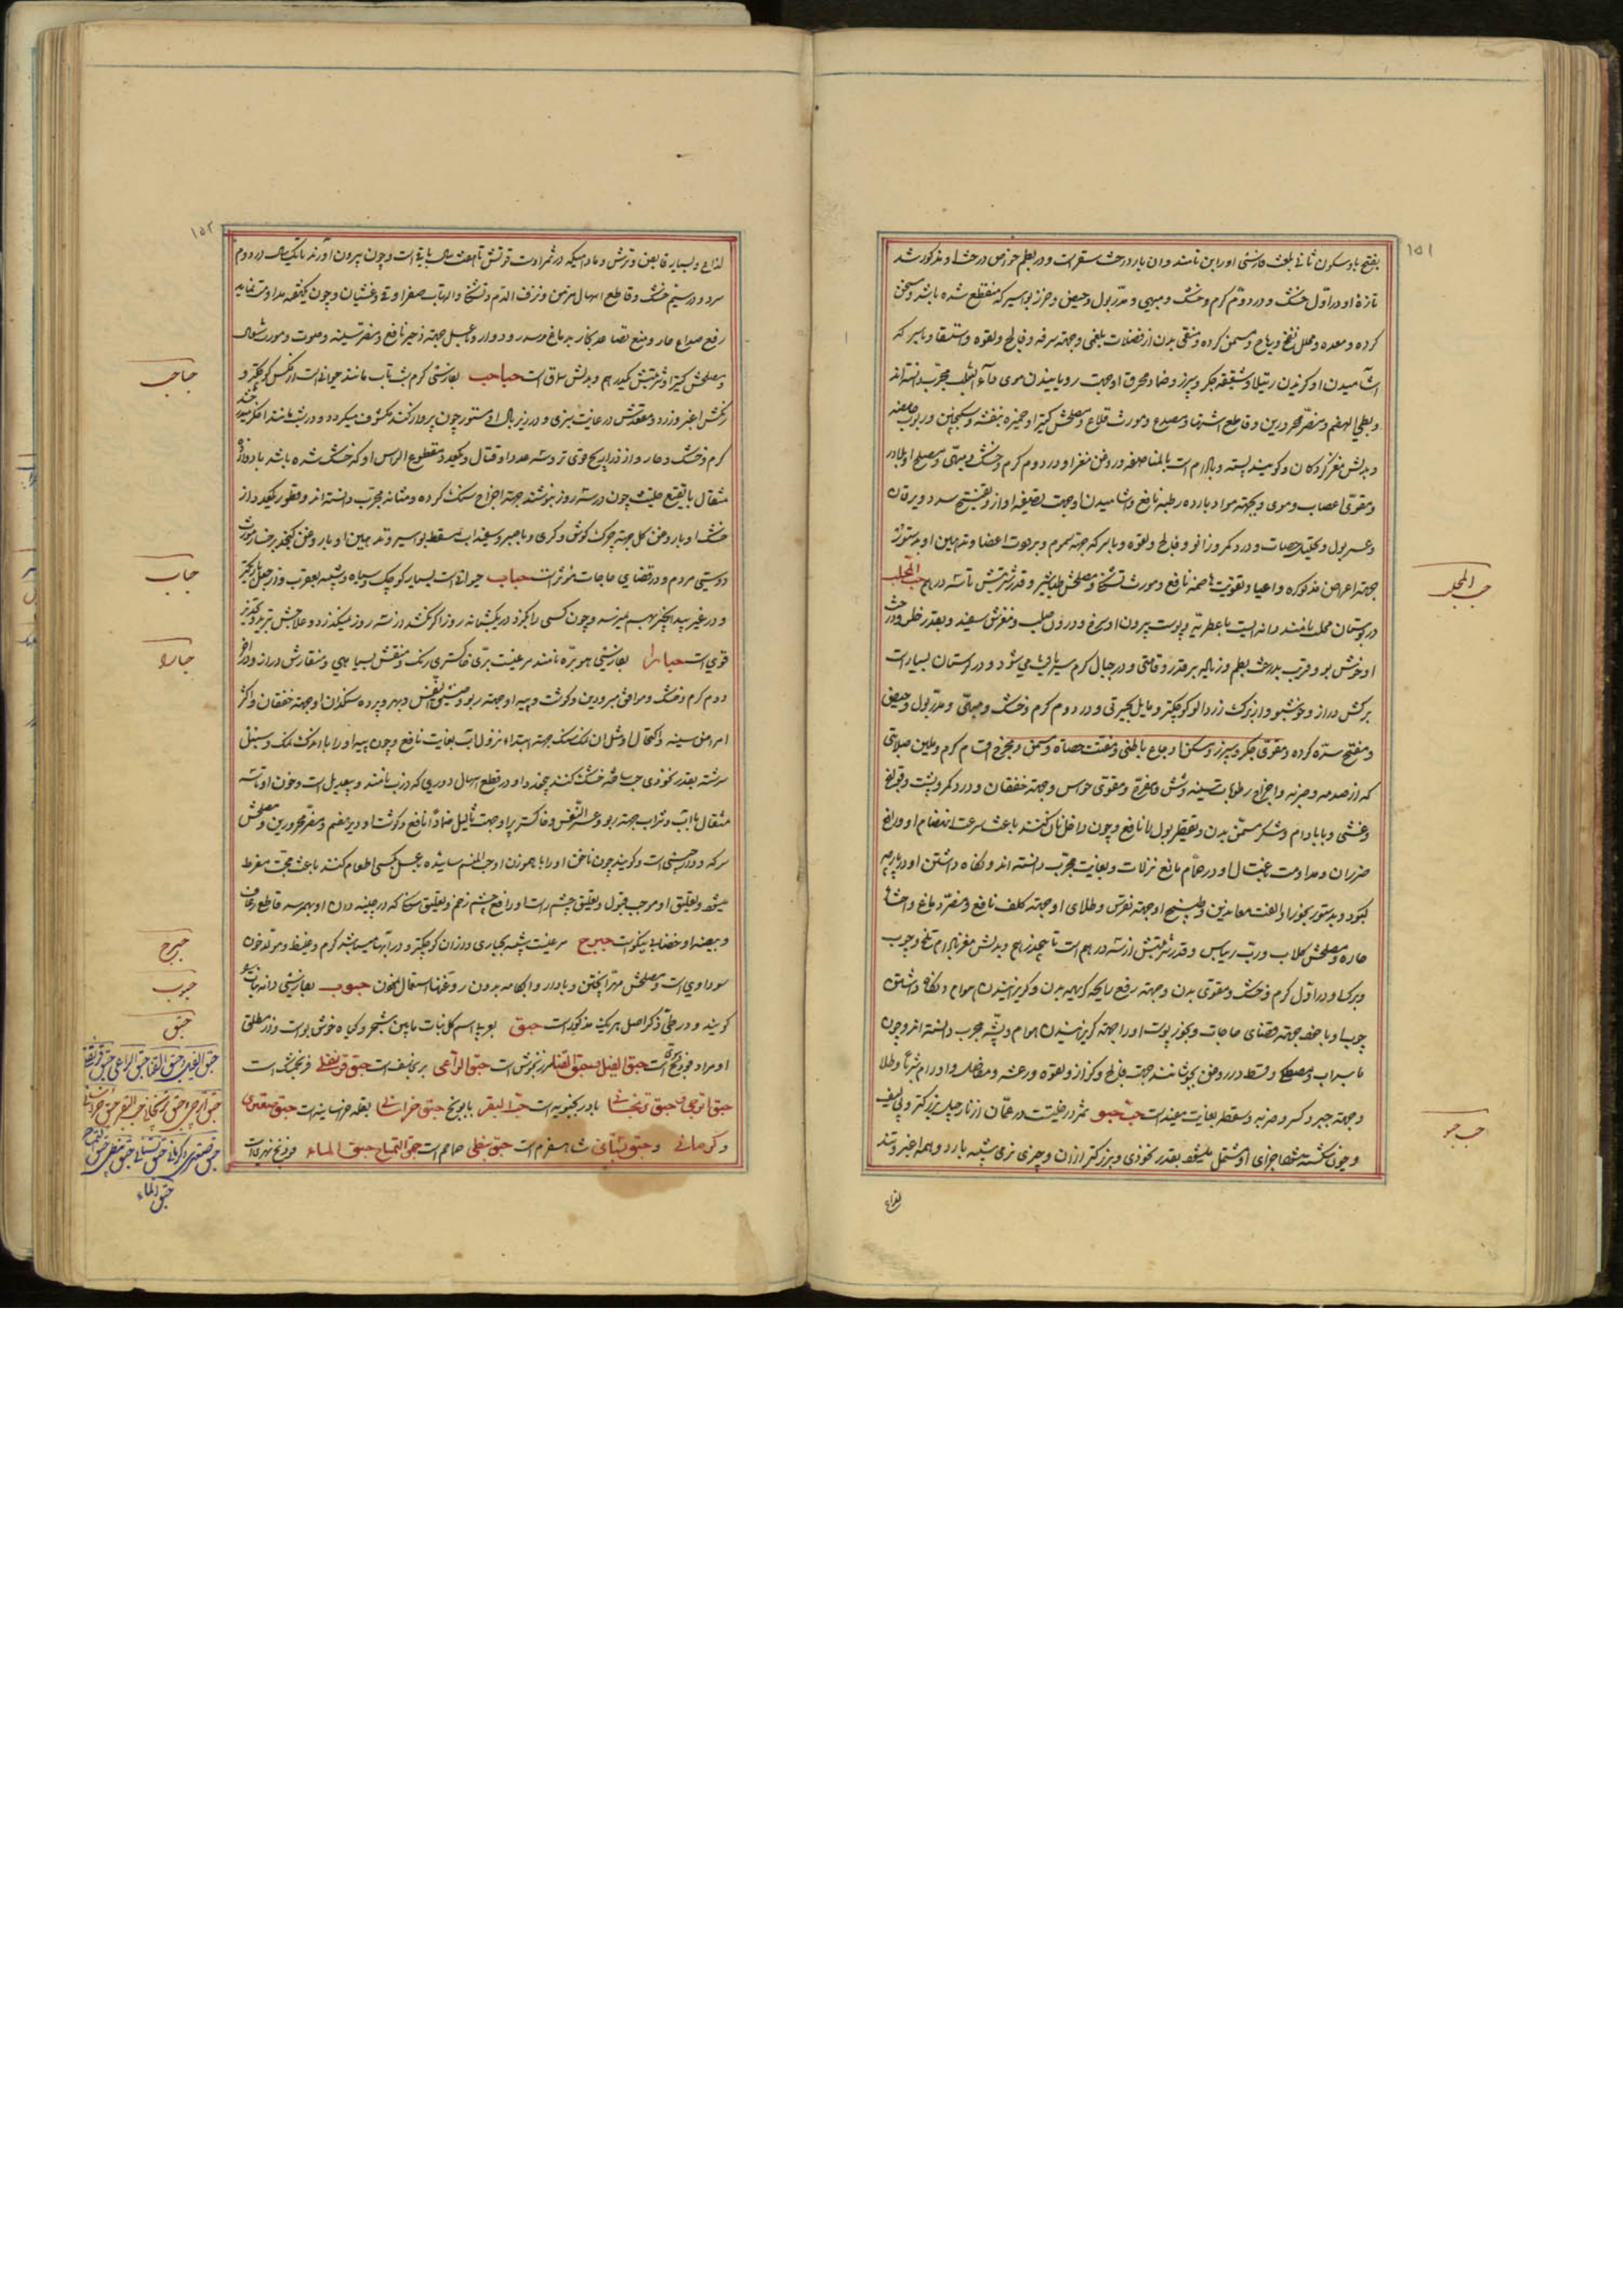 ۱۵۱
بفتح با و سکون ثانی بلغت فارسی او را بن نامند و ان بار درخت سقز است و در بطم خواص درخت او مذکور شد
تازهٔ او در اوّل خشک و در دوّم کرم و خشک و مبهی و مدّر بول و حیض و حرز بواسیر که منقطع شده باشد و مسخن
کرده و معده و محلل نفخ و ریاح و مسمن کرده و منقی بدن از فضلات بلغمی و جهته سرفه و فالج و لقوه و استسقا و با سرکه
اشامیدن او کزیدن رتیلا و شقیقه جکر و سپرز و ضماد محرق او جهت رویانیدن موی داء الثعلب مجرّب دانسته‌اند
و بطی الهضم و مضرّ محرورین و قاطع اشتها و مصدع و مورث قلاع و مصلحش کتیرا و خمیره بنفشه و سکنجبین و ربوب حامضه
و بدلش مغز کردکان و کویند پسته و بادام است بالمناصفه و روغن مغز او در دوم کرم و خشک و مبهی
و مقوّی اعصاب و موی و جهته مواد بارده رطبه نافع و اشامیدن او جهت تصفیه اواز و تفتیح سدد و یرقان
و عسر بول و تحلیل حصات و درد کمر و زانو و فالج و لقوه و با سرکه جهته سرسام و برودت اعضا و تدهین او بدستور
جهته اعراض مذکوره و اعیا و تقویت هاضمه نافع و مورث تشنکی و مصلحش طباشیر و قدر شربتش تا سه درهم حب المحلب
حب المحلب
در بوستان محلب نامند دانه ایست با عطریّه و پوست بیرون او سرخ و درون صلب و مغزش سفید و بقدر فلفل و درخت
او خوش بو و قریب بدرخت بطم و زیاده بر قدر و قامتی و در جبال کرم سیراب می شود و در کردستان بسیار است
برکش دراز و خوشبو و از برک زردالو کوچکتر و مایل بکبرتی و در دوم کرم و خشک و مبهی و مدّر بول و حیض
و مفتح سدّه کرده و مقوّی جکر و سپرز و مسکن اوجاع باطنی و مفتت حصاة و مسمن و مخرج اقسام کرم و ملین صلابتی
که از صدمه و ضربه و اخراج رطوبات سینه و شش و مفرح و مقوی حواس و جهته خفقان و درد کمر و پشت و قولنج
و غشی و با بادام و شکر مسمّن بدن و تقطیر بول را نافع و چون داخل نان کنند باعث سرعت انهضام او و رافع
ضرر ان و مداومت اغتسال او در حمّام مانع نزلات و بغایت مجرّب دانسته‌اند و نکاه داشتن او در پارچه
کبود و بدستور بخور او الفت معاندین و طبیخ او جهته نقرس و طلای او جهته کلف نافع و مضرّ دماغ و احشاء
حارّه و مصلحش کلاب و ربّ ریباس و قدر شربتش از سه درهم است تا پنج درهم و بدلش مغز بادام تلخ و چوب
و برک او در اوّل کرم و خشک و مقوی بدن و جهته رفع رایحه کریهه بدن و کریزانیدن هوام و نکاه داشتن
چوب او با خود جهته قضای حاجات و بخور پوست او را جهته کریزانیدن هوام و پشّه مجرب دانسته‌اند و چون
با سداب و مصطکی و قسط در روغن بجوشانند جهت فالج و کزاز و لقوه و رعشه و مفاصل و اورام شربا و طلا
و جهته جبر و کسر و ضربه و سقطه بغایت مفید است حبّ حبو ثمر درختیست در عمّان از نارجیل بزرکتر و بی لیف
حب حبو
و چون شکسته شود اجزای او مشتمل میشود بقدر نخودی و بزرکتر از ان و چیزی نرمی شبیه بارد و همه اغبر و تند
لذاع
۱۵۲
لذاع و بسیار قابض و ترش و مادامیکه در ثمر اوست قوتش تا هفت سال باقی است و چون بیرون آورند تا یکسال در دوم
سرد و در سیّم خشک و قاطع اسهال مزمن و نزف الدّم و تشنکی و التهاب صفراوی و غشیان و چون یکهفته مداومت نمایند
رفع صداع حار و منع تصاعد بخار بدماغ و سدر و دوار و با عسل جهته زحیر نافع و مضر سینه و صوت و مورث سعال
و مصلحش کتیرا و شربتش یکدرهم و بدلش سماق است حباحب بفارسی کرم شب تاب مانند حیوانی است از مکس کوچکتر و
حباحب
رنکش اغبر و زرد و مقعدش در غایت سبزی و در زیر بال او مستور چون پرواز کند مکشوف میکردد و در شب مانند اخکر میدرخشد
کرم و خشک و حار و از ذراریح قوی تر و سه عدد او قتال و یکعدد مقطوع الراس او که خشک شده باشد با دو دانک
مثقال با نقیع حلیت چون در سه روز بنوشند جهته اخراج سنک کرده و مثانه مجرّب دانسته‌اند و قطور یکعدد از
خشک او با روغن کل جهته چرک کوش و کری و با صبر و سفیداب مسقط بواسیر و تدهین او با روغن کنجد بر خساره مورث
دوستی مردم و در قضای حاجات مؤثر است حباب حیوانی است بسیار کوچک و سیاه و شبیه بعقرب و از جعل کوچکتر
حباب
و در غیر بید انجیر بهم میرسد و چون کسی را بکزد در یکشبانه روز اکر نکشد در سه روز میکشد و علاجش تریاق و تبرید
قوی است حبارا بفارسی هوبره نامند مرغیست برّی خاکستری رنک و منقش بسیاهی و منقارش دراز و در اخر
حبارا
دوم کرم و خشک و موافق مبرودین و کوشت و پیه او جهته ربو و ضیق النفس و بهر و پرده سنکدان او جهته خفقان و اکثر
امراض سینه و اکتحال او مثل ان نمک سنک جهته ابتداء نزول اب بغایت نافع و چون پیه او را با اندک نمک و سنبل
سرشته بقدر نخودی حب ساخته خشک کنند چند دانه او در قطع اسهال دوری که ذرب نامند و بیعدیل است و خون او تا سه
مثقال با اب و شراب جهته ربو و عسر النّفس و خاکستر پر او جهت ثآلیل ضماداً نافع و کوشت او دیر هضم و مضرّ محرورین و مصلحش
سرکه و دارچینی است و کویند چون ناخن او را با هموزن او حب المیس سائیده بعسل کسی اطعام کنند باعث محبّت مفرط
میشود و تعلیق او موجب قبول و تعلیق چشم راست او رافع چشم زخم و تعلیق سنکی که در چینه دان او بهم رسد قاطع رعاف
و بیضه او خضاب نیکوست حبرج مرغیست شبیه بحباری و از ان کوچکتر و در ابها میباشد کرم و غلیظ و مولّد خون
حبرج
سوداوی است و مصلحش مهرّا پختن و با دارو و ابکامه بدون روغنها استعمال نمودن حبوب بفارسی دانه‌ها
حبوب
کویند و در طیّ ذکر اصل هر یک مذکور است حبق بعربی اسم کل نبات مابین شجر و کیاه خوش بو است و از مطلق
حبق
او مراد فودنج است حبق الفیل و حبق القنا مرزنجوش است حبق الرّاعی برنجاسف است حبق قرنفلی فرنجمشک است
حبق الفیل و حبق القنا حبق الراعی حبق قرنفلی
حبق اترجی و حبق ترنجانی بادرنجبویه است حبق البقر بابونج حبق خراسانی بقله خراسانیه است حبق صعتری
حبق اترجی و حبق ترنجانی حبق البقر حبق خراسانی
و کرمانی و حبق نبطی شاهسفرم است حبق نبطی حماحم است حبق التمساح حبق الماء فودنج نهری است
حبق صعتری و کرمانی حبق بستانی حبق نبطی حبق التمساح
حبق الماء